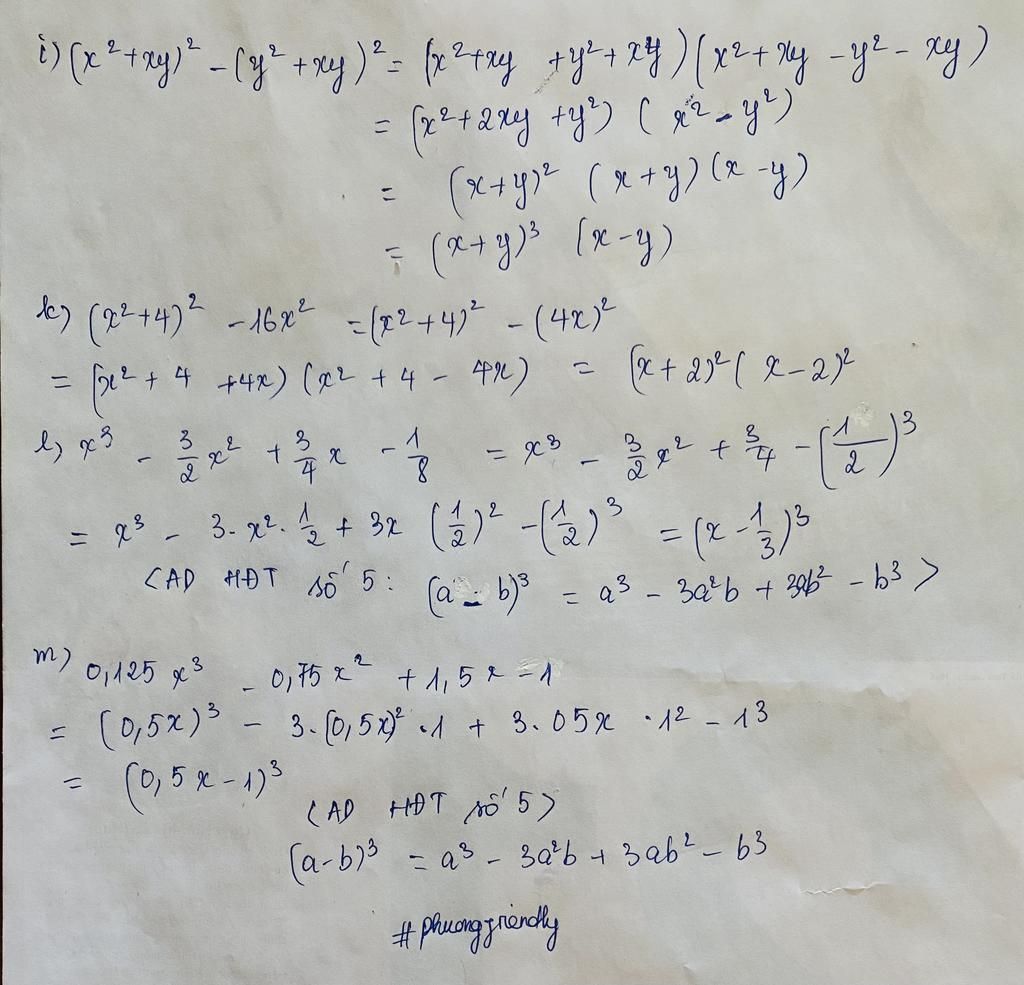 i) (x² + xy)² - (y² + xy)² = (x² + xy + y² + xy) (x² + xy - y² - xy)
= (x² + 2xy + y²) (x² - y²)
= (x + y)² (x + y) (x - y)
= (x + y)³ (x - y)
k) (x² + 4)² - 16x² = (x² + 4)² - (4x)²
= (x² + 4 + 4x) (x² + 4 - 4x) = (x + 2)² (x - 2)²
l) x³ - 3/2 x² + 3/4 x - 1/8 = x³ - 3/2 x² + 3/4 - (1/2)³
= x³ - 3 . x² . 1/2 + 3x (1/2)² - (1/2)³ = (x - 1/3)³
<AD HĐT số 5 : (a - b)³ = a³ - 3a²b + 3ab² - b³ >
m) 0,125 x³ - 0,75 x² + 1,5 x - 1
= (0,5x)³ - 3 . (0,5x)² . 1 + 3 . 05x . 1² - 1³
= (0,5 x - 1)³
<AD HĐT số 5>
(a - b)³ = a³ - 3a²b + 3ab² - b³
#phuongfriendly